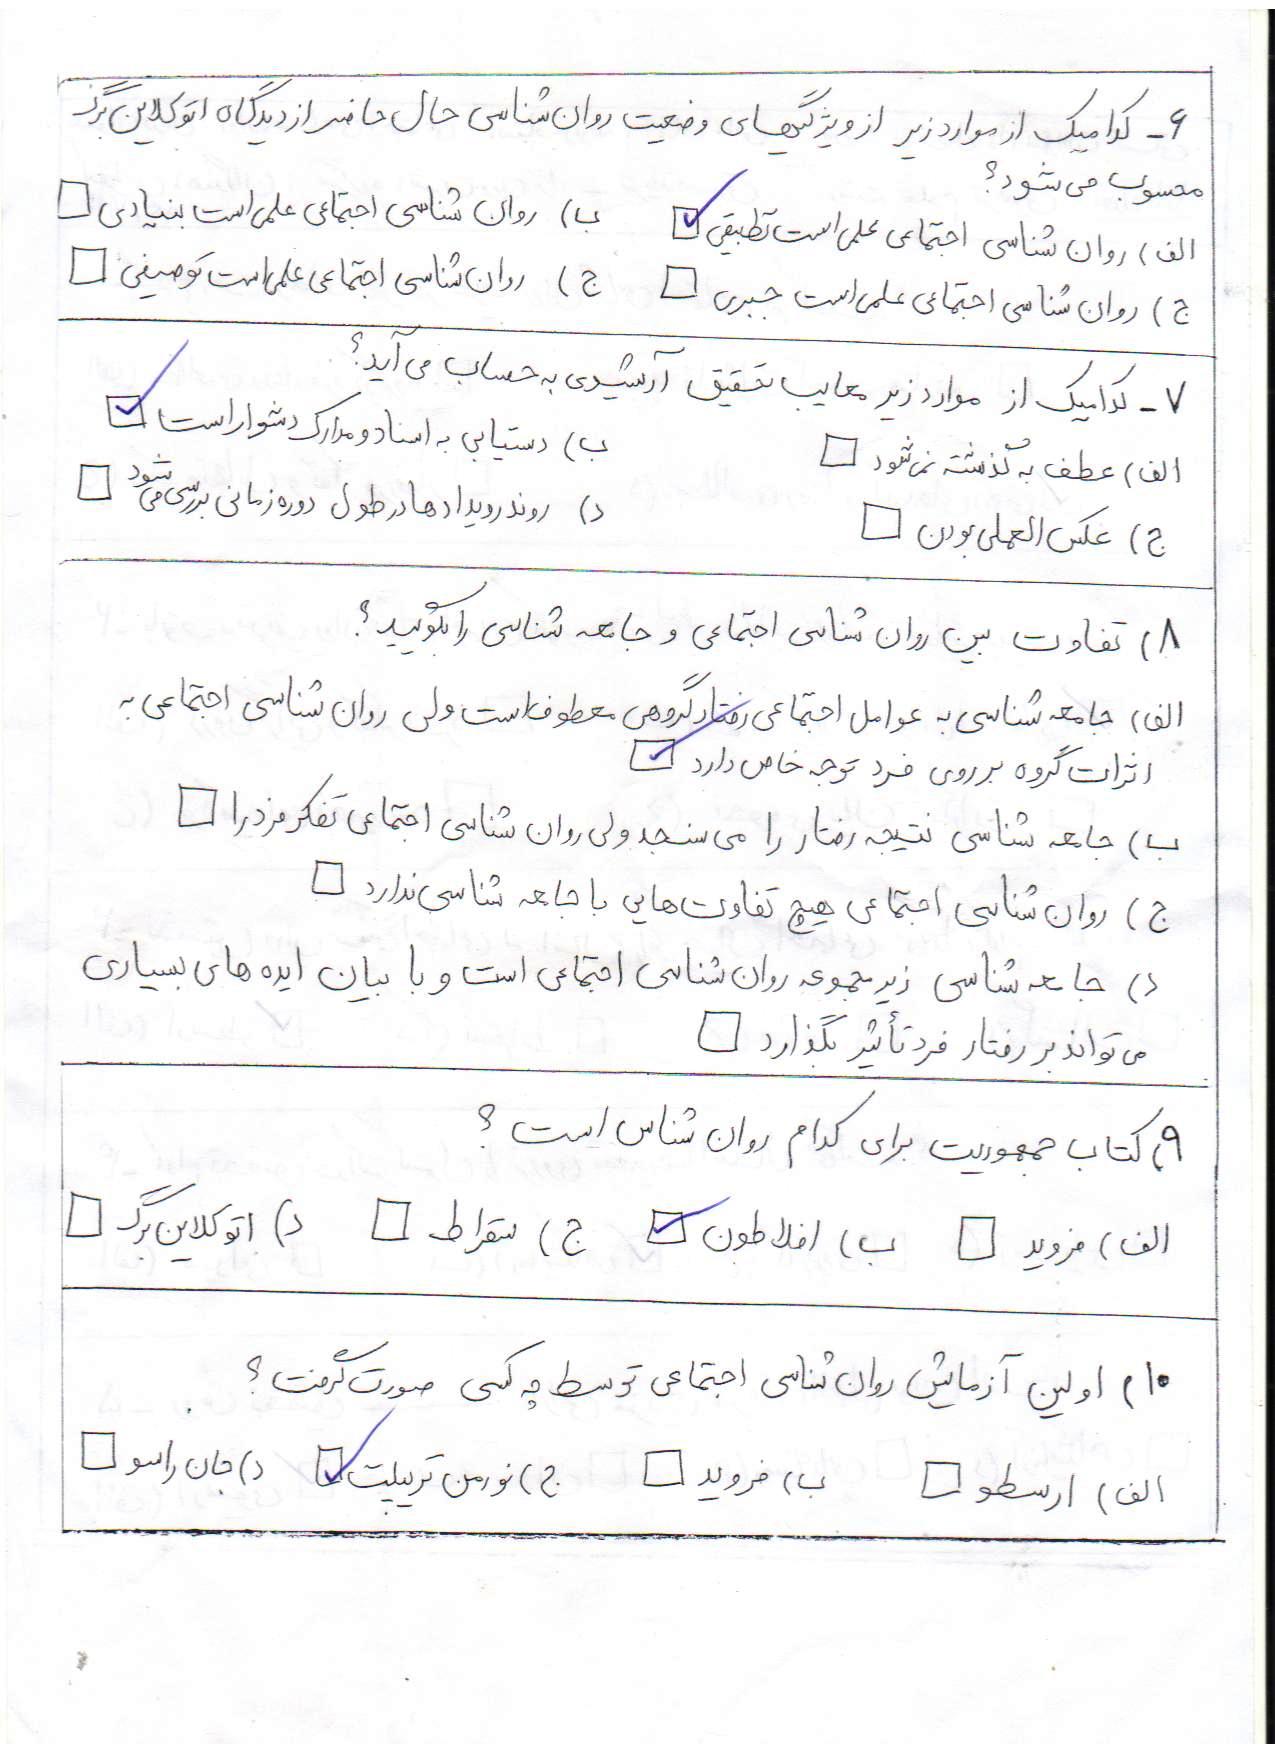 ۶- کدامیک از موارد زیر از ویژگیهای وضعیت روان شناسی حال حاضر از دیدگاه اتوکلاین برگ
محسوب می شود؟
الف) روان شناسی اجتماعی علمی است تطبیقی ب) روان شناسی اجتماعی علمی است بنیادی
ج) روان شناسی اجتماعی علمی است جبری ج) روان شناسی اجتماعی علمی است توصیفی
۷- کدامیک از موارد زیر معایب تحقیق آرشیوی به حساب می آید؟
الف) عطف به گذشته نمی شود ب) دستیابی به اسناد و مدارک دشوار است
ج) عکس العملی بودن د) روند رویدادها در طول دوره زمانی بررسی می شود
۸) تفاوت بین روان شناسی اجتماعی و جامعه شناسی را بگویید؟
الف) جامعه شناسی به عوامل اجتماعی رفتار گروهی معطوف است ولی روان شناسی اجتماعی به
اثرات گروه بر روی فرد توجه خاص دارد
ب) جامعه شناسی نتیجه رفتار را می سنجد ولی روان شناسی اجتماعی تفکر فرد را
ج) روان شناسی اجتماعی هیچ تفاوت هایی با جامعه شناسی ندارد
د) جامعه شناسی زیر مجموعه روان شناسی اجتماعی است و با بیان ایده های بسیاری
می تواند بر رفتار فرد تأثیر بگذارد
۹) کتاب جمهوریت برای کدام روان شناس است؟
الف) فروید ب) افلاطون ج) سقراط د) اتوکلاین برگ
۱۰) اولین آزمایش روان شناسی اجتماعی توسط چه کسی صورت گرفت؟
الف) ارسطو ب) فروید ج) نورمن تریپلت د) جان راسو